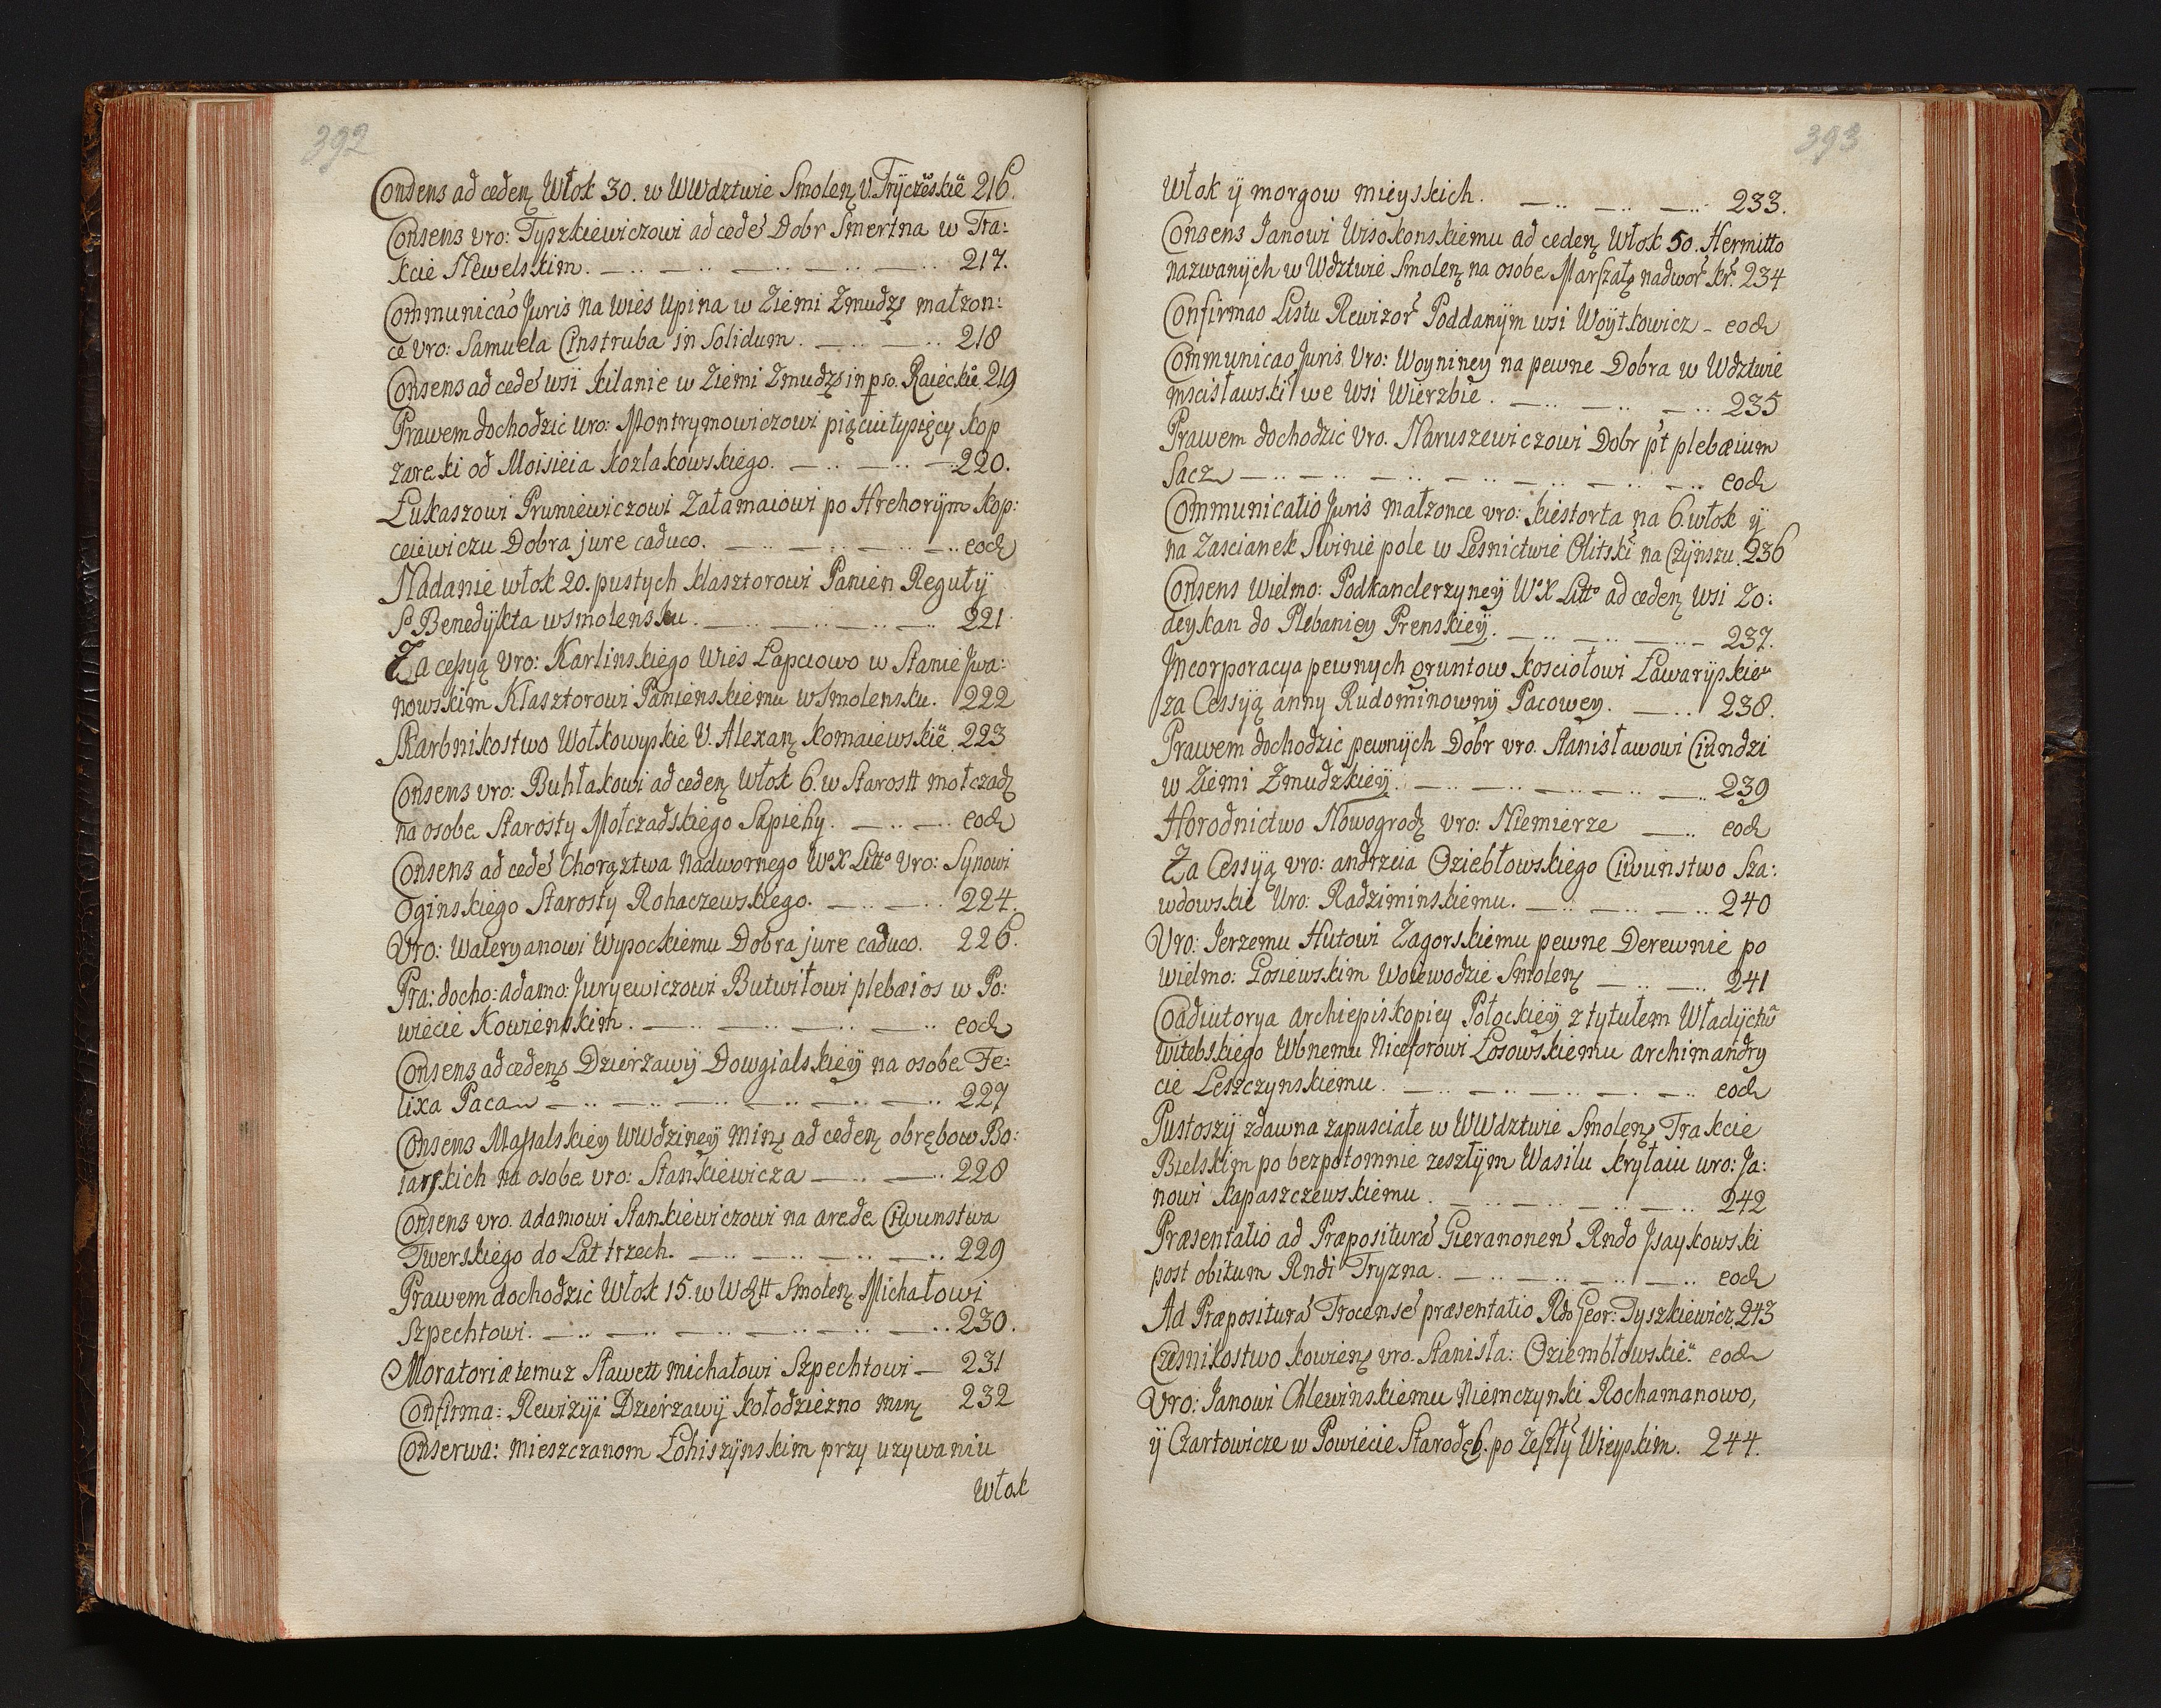 392
Consens ad ceden Włok 30. w WWdztwie Smolen V. Tryczeskie 216.
Consens vro: Tyszkiewiczowi ad cede Dobr Smertna w Tra:
kcie Newelskim. — .. — .. — .. — .. — .. 217.
Communicao Juris na wies Upina w Ziemi Zmudz małzon:
ce vro: Samuela Cinstruba in Solidum. — .. — .. 218
Consens ad cede wsi kilanie w Ziemi Zmudz in pso. Raieckie 219
Prawem dochodzic uro: Montrymowiczowi piąciu tysięcy kop
zareki od Moisieia kozlakowskiego. — .. — .. — 220.
Łukaszowi Pruniewiczowi Załamaiowi po Hrehorym kop:
ceiewiczu Dobra jure caduco. — .. — .. — .. — .. eod
Nadanie włok 20. pustych klasztorowi Panien Reguły
So Benedykta w Smolensku. — .. — .. — .. — .. 221
Za cessyą vro: Karlinskiego Wies Łapciowo w Stanie Jwa:
nowskim Klasztorowi Panienskiemu w Smolensku. 222
Skarbnikostwo Wołkowyskie V. Alexan komaiewskie 223
Consens vro: Buhłakowi ad ceden Włok 6. w Starostt mołczadz
na osobe Starosty Mołczadskiego Sapiehy. — .. — .. eod
Consens ad cede Chorąztwa nadwornego WoX Litto vro: Synowi
Oginskiego Starosty Rohaczewskiego. — .. — .. 224.
Vro: Waleryanowi Wysockiemu Dobra jure caduco. 226.
Pra: docho: adamo: Juryewiczowi Butwiłowi plebæios w Po:
wiecie Kowienskim. — .. — .. — .. — .. eod
Consens ad ceden Dzierzawy Dowgialskiey na osobe Fe:
lixa Paca — .. — .. — .. — .. — .. — .. 227
Consens Massalskiey WWdziney Min ad ceden obrębow Bo:
iarskich na osobe vro: Stankiewicza — .. — .. 228
Consens vro. adamowi Stankiewiczowi na arede Ciwunstwa
Twerskiego do Lat trzech. — .. — .. — .. — .. 229
Prawem dochodzic Włok 15. w WDtt Smolen Michałowi
Szpechtowi. — .. — .. — .. — .. — .. — .. 230.
Moratoriæ temuz Sławett michałowi Szpechtowi — 231
Confirma: Rewizyi Dzierzawy kołodziezno min 232
Conserwa: mieszczanom Łohiszynskim przy uzywaniu
Włok
393
Włok ÿ morgow mieyskich. — .. — .. — .. 233.
Consens Janowi Wisokonskiemu ad ceden Włok 50. Hermitto
nazwanych w Wdztwie Smolen na osobe Marszał nadwor kr. 234
Confirmao Listu Rewizor Poddanym wsi Woytkowicz - eod
Communicao Juris vro: Woyniney na pewne Dobra w Wdztwie
mscisławski we wsi Wierzbie. — .. — .. — .. 235
Prawem dochodzic vro. Naruszewiczowi Dobr pt plebæium
Sacz — .. — .. — .. — .. — .. — .. — .. eod
Communicatio Juris małzonce vro: kiestorta na 6. włok ÿ
na Zascianek Swinie pole w Lesnictwie Olitski na Czynszu. 236
Consens wielmo: Podkanclerzyney WoX Litto ad ceden wsi Zo:
deykan do Plebaniey Prenskiey. — .. — .. — .. — 237.
Jncorporacya pewnych gruntow kosciołowi Ławaryskie
za Cessyą anny Rudominowny Pacowey. — .. 238.
Prawem dochodzic pewnych Dobr vro. Stanisławowi Ciundzi
w Ziemi Zmudzkiey. — .. — .. — .. — .. — .. 239
Horodnictwo Nowogrodz vro: Niemierze — .. eod
Za Cessyą vro: andrzeia Oziebłowskiego Ciwunstwo Sza:
wdowskie Uro: Radziminskiemu. — .. — .. — .. 240
Vro: Jerzemu Hutowi Zagorskiemu pewne Derewnie po
wielmo: Gosiewskim Woiewodzie Smolen — .. — .. 241
Coadiutorya archiepiskopiey Połockiey z tytułem Władyctw
witebskiego Wbnemu Niceforowi Łosowskiemu archimandry
cie Leszczynskiemu. — .. — .. — .. — .. — .. eod
Pustoszy zdawna zapusciałe w WWdztwie Smolen Trakcie
Bielskim po bezpotomnie zeszłym Wasilu kryłaiu uro: Ja:
nowi kapaszczewskiemu. — .. — .. — .. — .. 242
Præsentatio ad Præpositura Gieranonen Rndo Jsaykowski
post obitum Rndi Tryzna. — .. — .. — .. — .. eod
Ad Præpositura Trocense præsentatio Rdo Geor: Tyszkiewicz. 243
Czesnikostwo kowien vro. Stanisła: Oziembłowskie. eod
Vro: Janowi Chlewinskiemu Niemczynki Rochamanowo,
ÿ Czartowicze w Powiecie Starodęb. po Zeszły Wieyskim. 244.